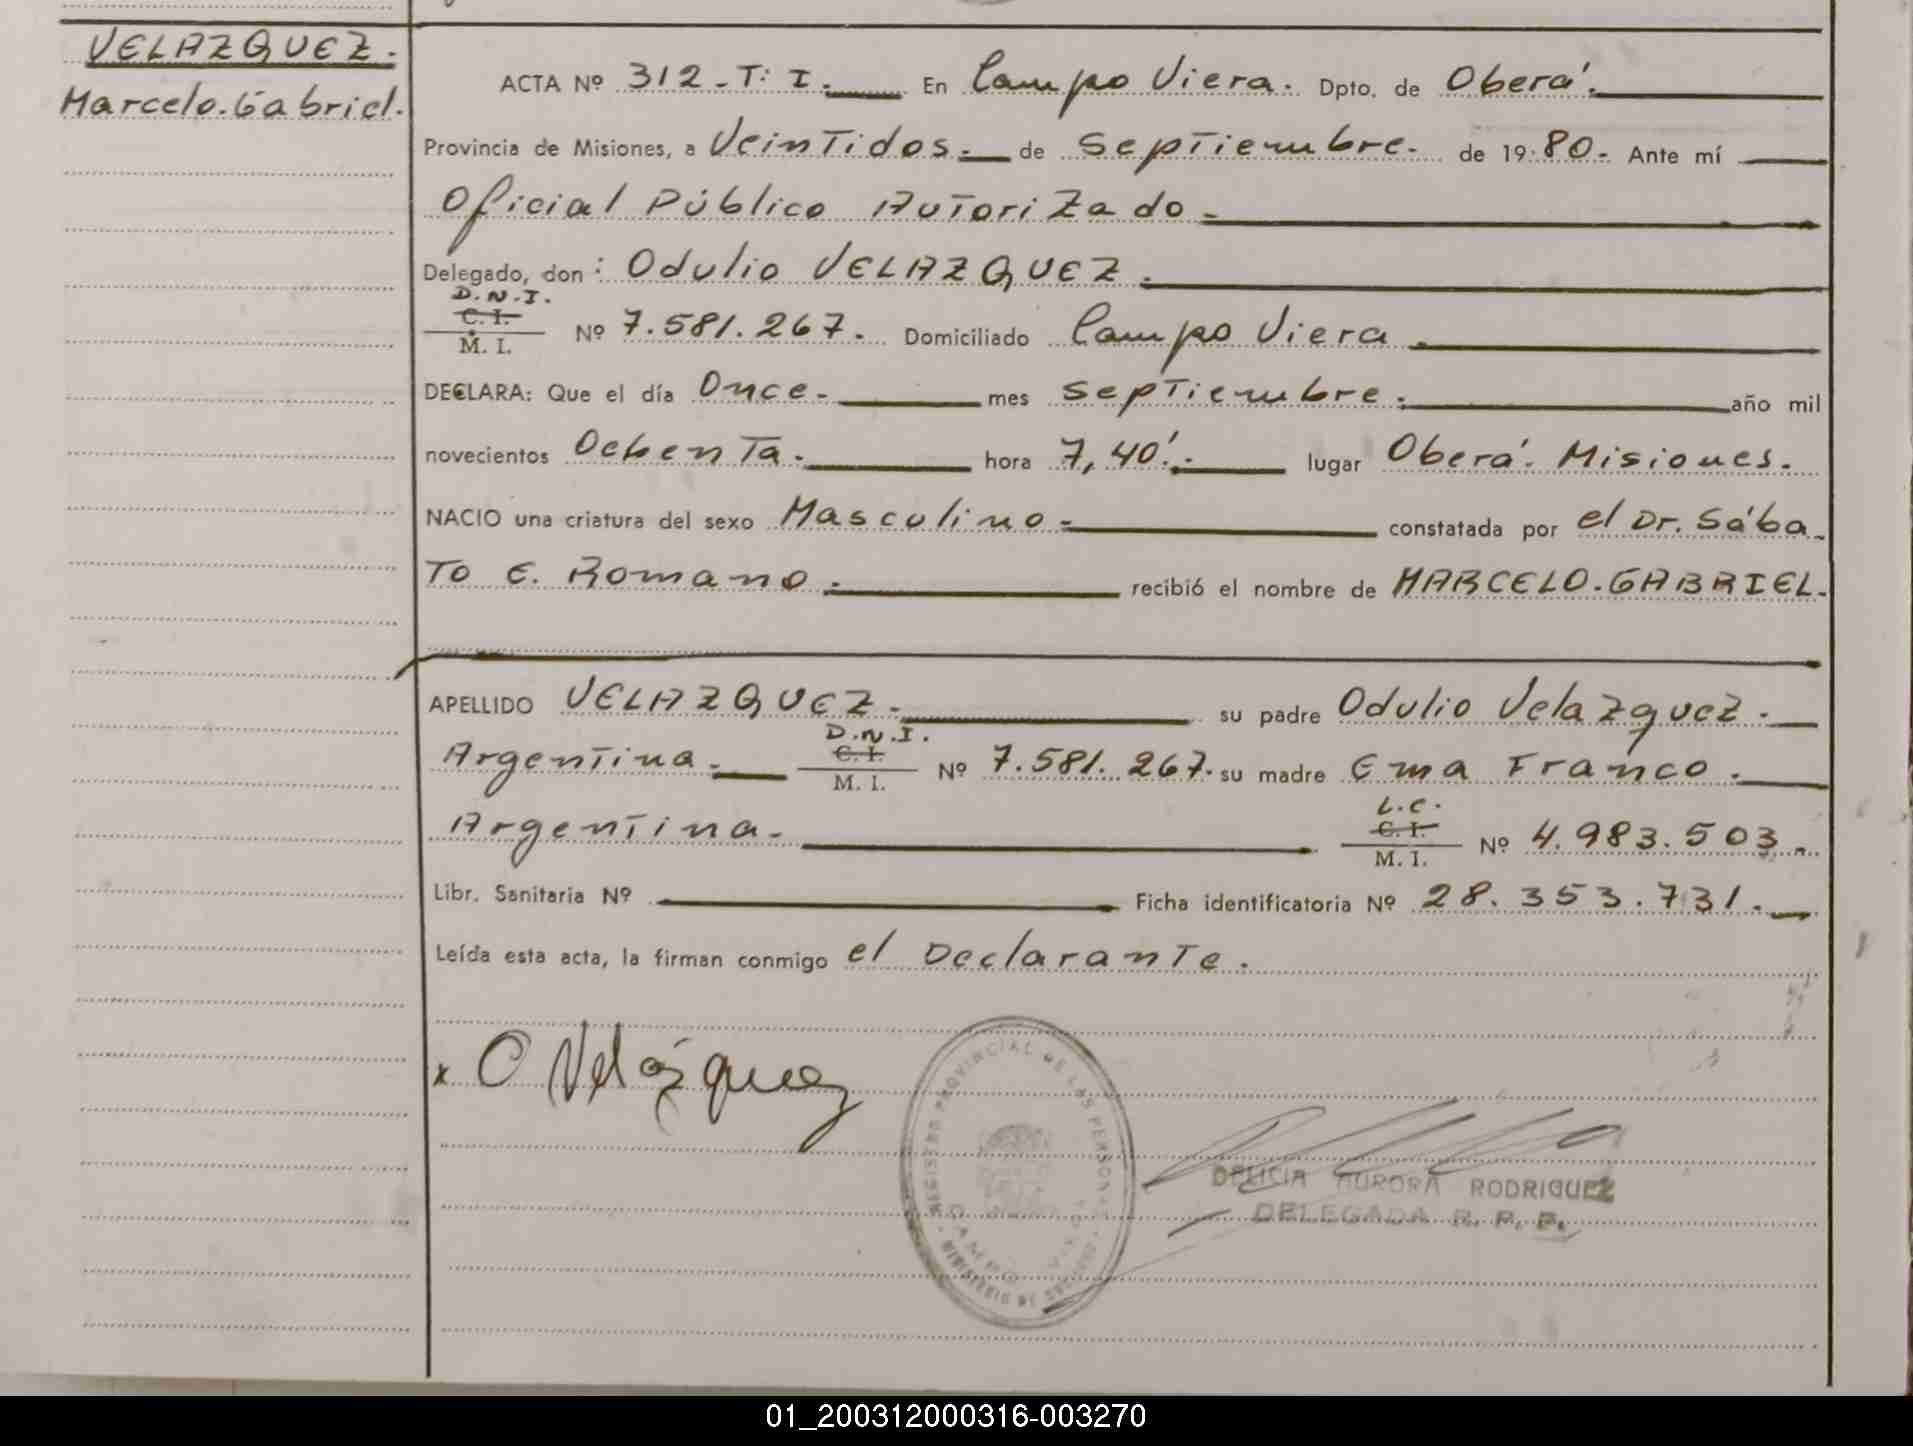 VELAZQUEZ.
Marcelo.Gabriel.
ACTA Nº 312-T: I. En Campo Viera. Dpto. de Oberá.
Provincia de Misiones, a VeinTidos. de SepTiembre. de 1980. Ante mí
Oficial Público AuToriZado.
Delegado, don: Odulio VELAZQUEZ.
D.N.I.
C. I.
M. I.
Nº 7.581.267. Domiciliado Campo Viera.
DECLARA: Que el día Once. mes SepTiembre. año mil
novecientos OchenTa. hora 7,40'. lugar Oberá. Misiones.
NACIO una criatura del sexo Masculino. constatada por el Dr. Sába
To E. Romano. recibió el nombre de MARCELO.GABRIEL.
APELLIDO VELAZQUEZ. su padre Odulio Velazquez.
D.N.I.
Argentina. C. I.
M. I.
Nº 7.581.267. su madre Ema Franco.
L.C.
Argentina. C. I.
M. I.
Nº 4.983.503.
Libr. Sanitaria Nº Ficha identificatoria Nº 28.353.731.
Leída esta acta, la firman conmigo el DeclaranTe.
x O Velázquez
REGISTRO PROVINCIAL DE LAS PERSONAS
CAMPO VIERA
MINISTERIO DE
DELICIA AURORA RODRIGUEZ
DELEGADA R. P. P.
01_200312000316-003270